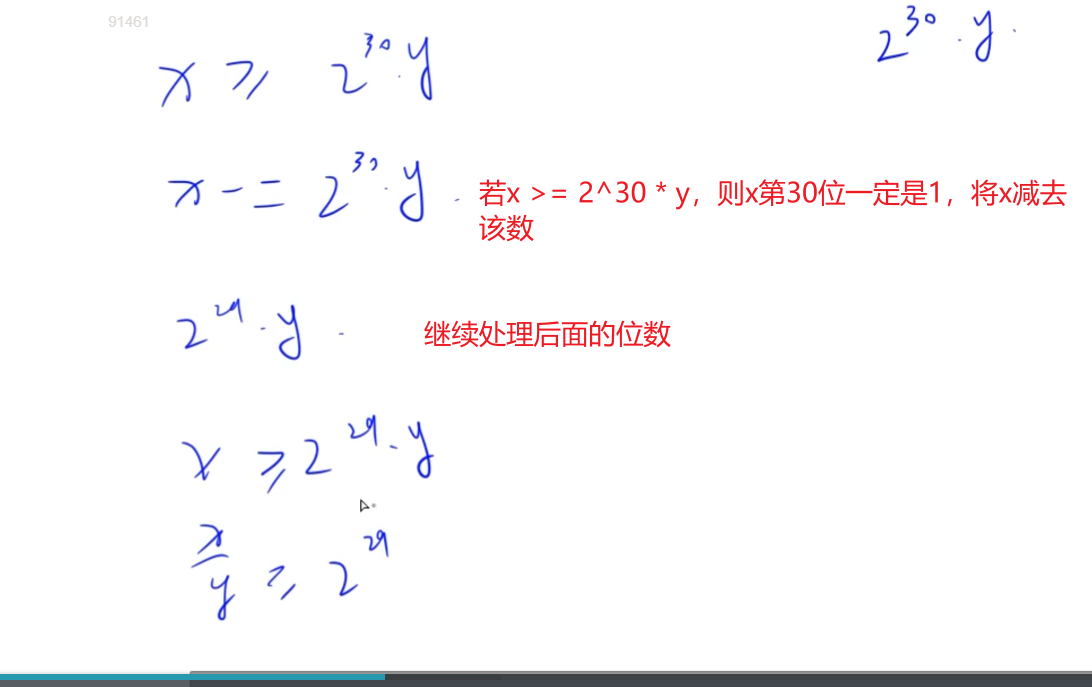 91461
2^30 · y ·
x ≥ 2^30 · y
x -= 2^30 · y ·
若x >= 2^30 * y，则x第30位一定是1，将x减去
该数
2^29 · y ·
继续处理后面的位数
x ≥ 2^29 · y
x/y ≥ 2^29